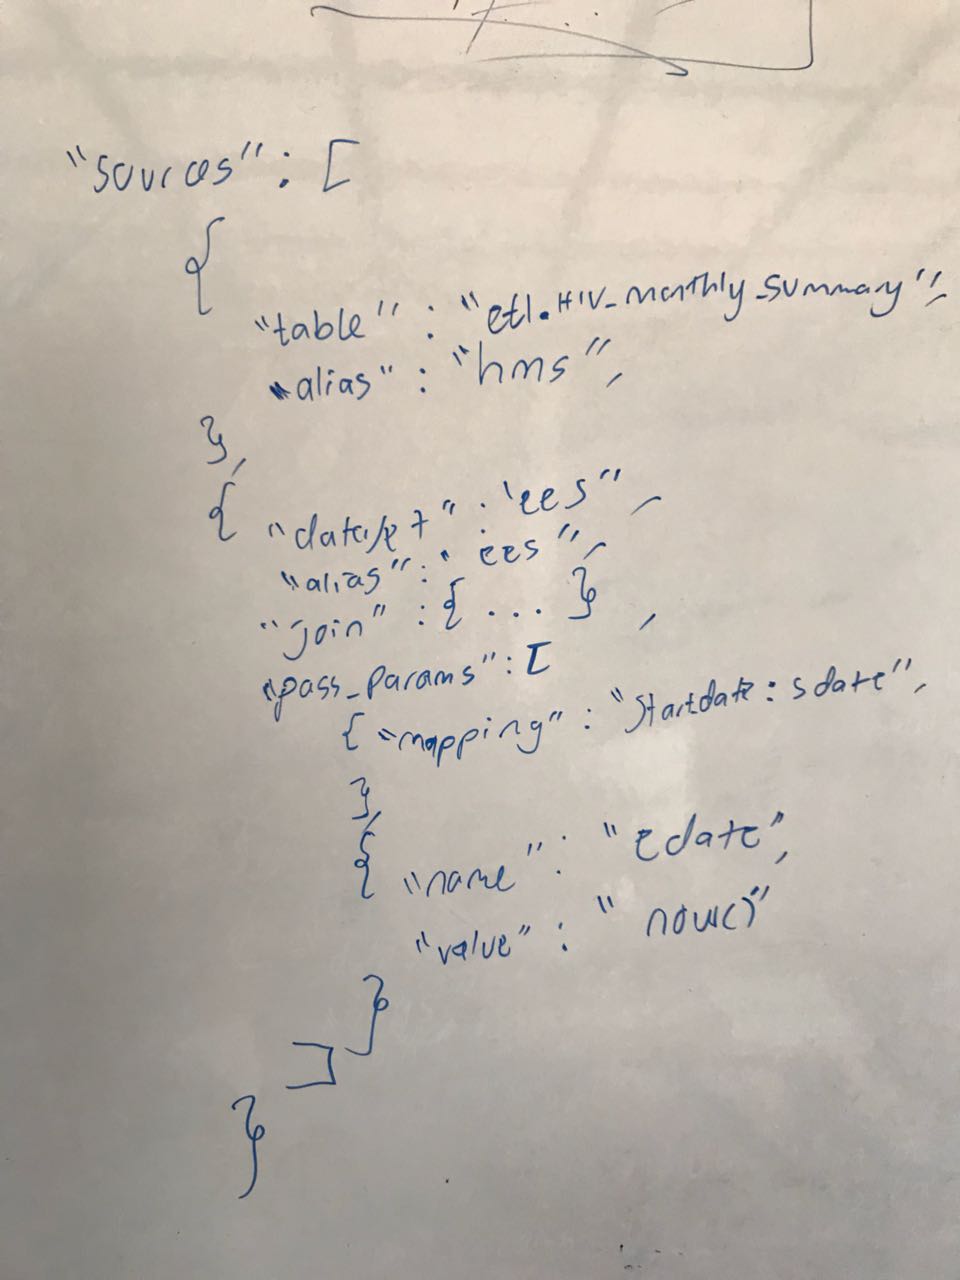 "sources": [
{
"table" : "etl.HIV_monthly_summary",
"alias" : "hms",
},
{ "dataset" : "ees",
"alias" : "ees",
"join" : { ... },
"pass_params" : [
{ "mapping" : "startdate : sdate",
},
{ "name" : "edate",
"value" : "now()"
}
]
}